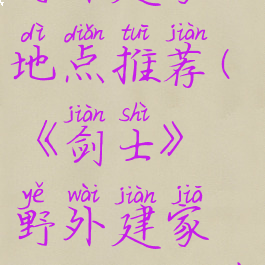 dì diǎn tuī jiàn
地点推荐(
jiàn shì
《剑士》
yě wài jiàn jiā
野外建家